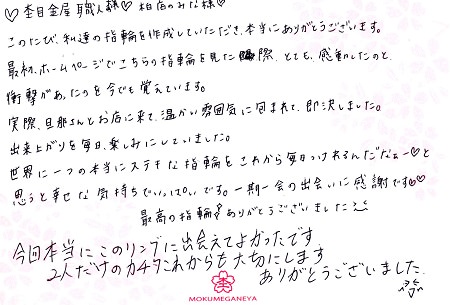 ♡杢目金屋 職人様♡ 柏店のみな様♡
このたび、私達の指輪を作成していただき、本当にありがとうございます。
最初、ホームページでこちらの指輪を見た際、とても、感動したのと、
衝撃があったのを今でも覚えています。
実際、旦那さんとお店に来て、温かい雰囲気に包まれて、即決しました。
出来上がりを毎日、楽しみにしていました。
世界に一つの本当にステキな指輪をこれから毎日つけれるんだなぁー♡と
思うと幸せな気持ちでいっぱいです。一期一会の出会いに感謝です♡♡
最高の指輪 ありがとうございました
今回本当にこのリングに出会えてよかったです
2人だけのカタチこれからも大切にします
ありがとうございました。
MOKUMEGANEYA